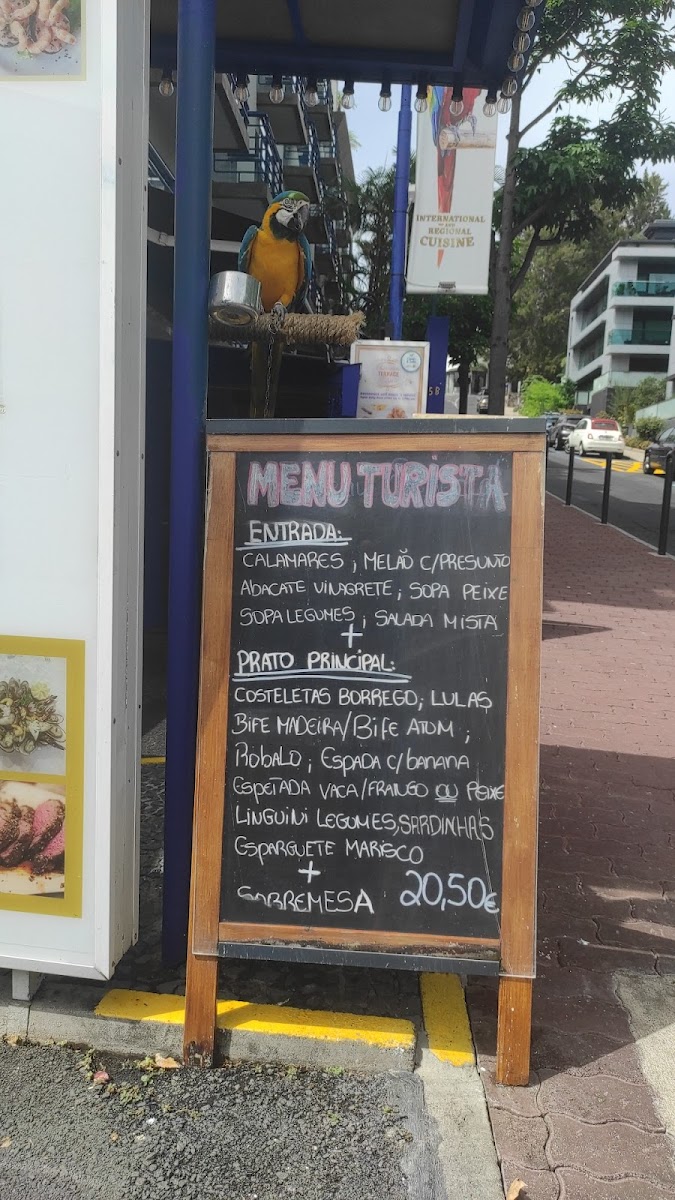 INTERNATIONAL
AND
REGIONAL
CUISINE
MENU TURISTA
ENTRADA:
CALAMARES ; MELÃO C/PRESUNTO
ABACATE VINAGRETE ; SOPA PEIXE
SOPA LEGUMES ; SALADA MISTA
+
PRATO PRINCIPAL:
COSTELETAS BORREGO; LULAS
BIFE MADEIRA/BIFE ATUM ;
ROBALO ; ESPADA C/BANANA
ESPETADA VACA/FRANGO OU PEIXE
LINGUINI LEGUMES,SARDINHAS
ESPARGUETE MARISCO
+
SOBREMESA 20,50€